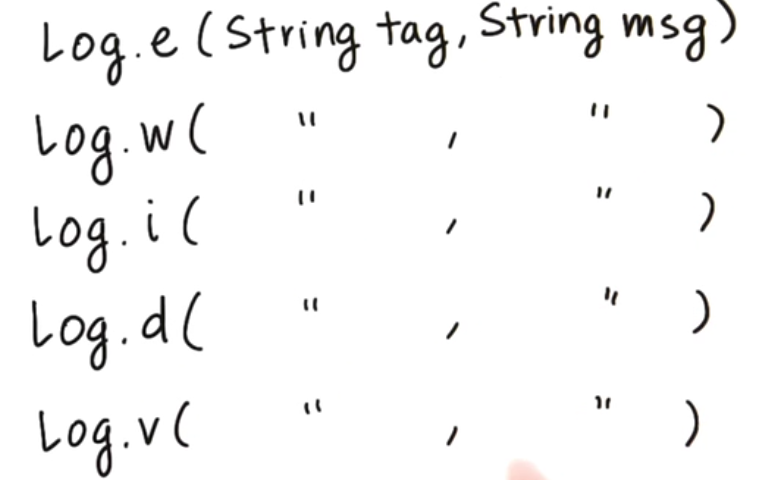 Log.e (String tag, String msg)
Log.w( " , " )
Log.i ( " , " )
Log.d( " , " )
Log.v( " , " )